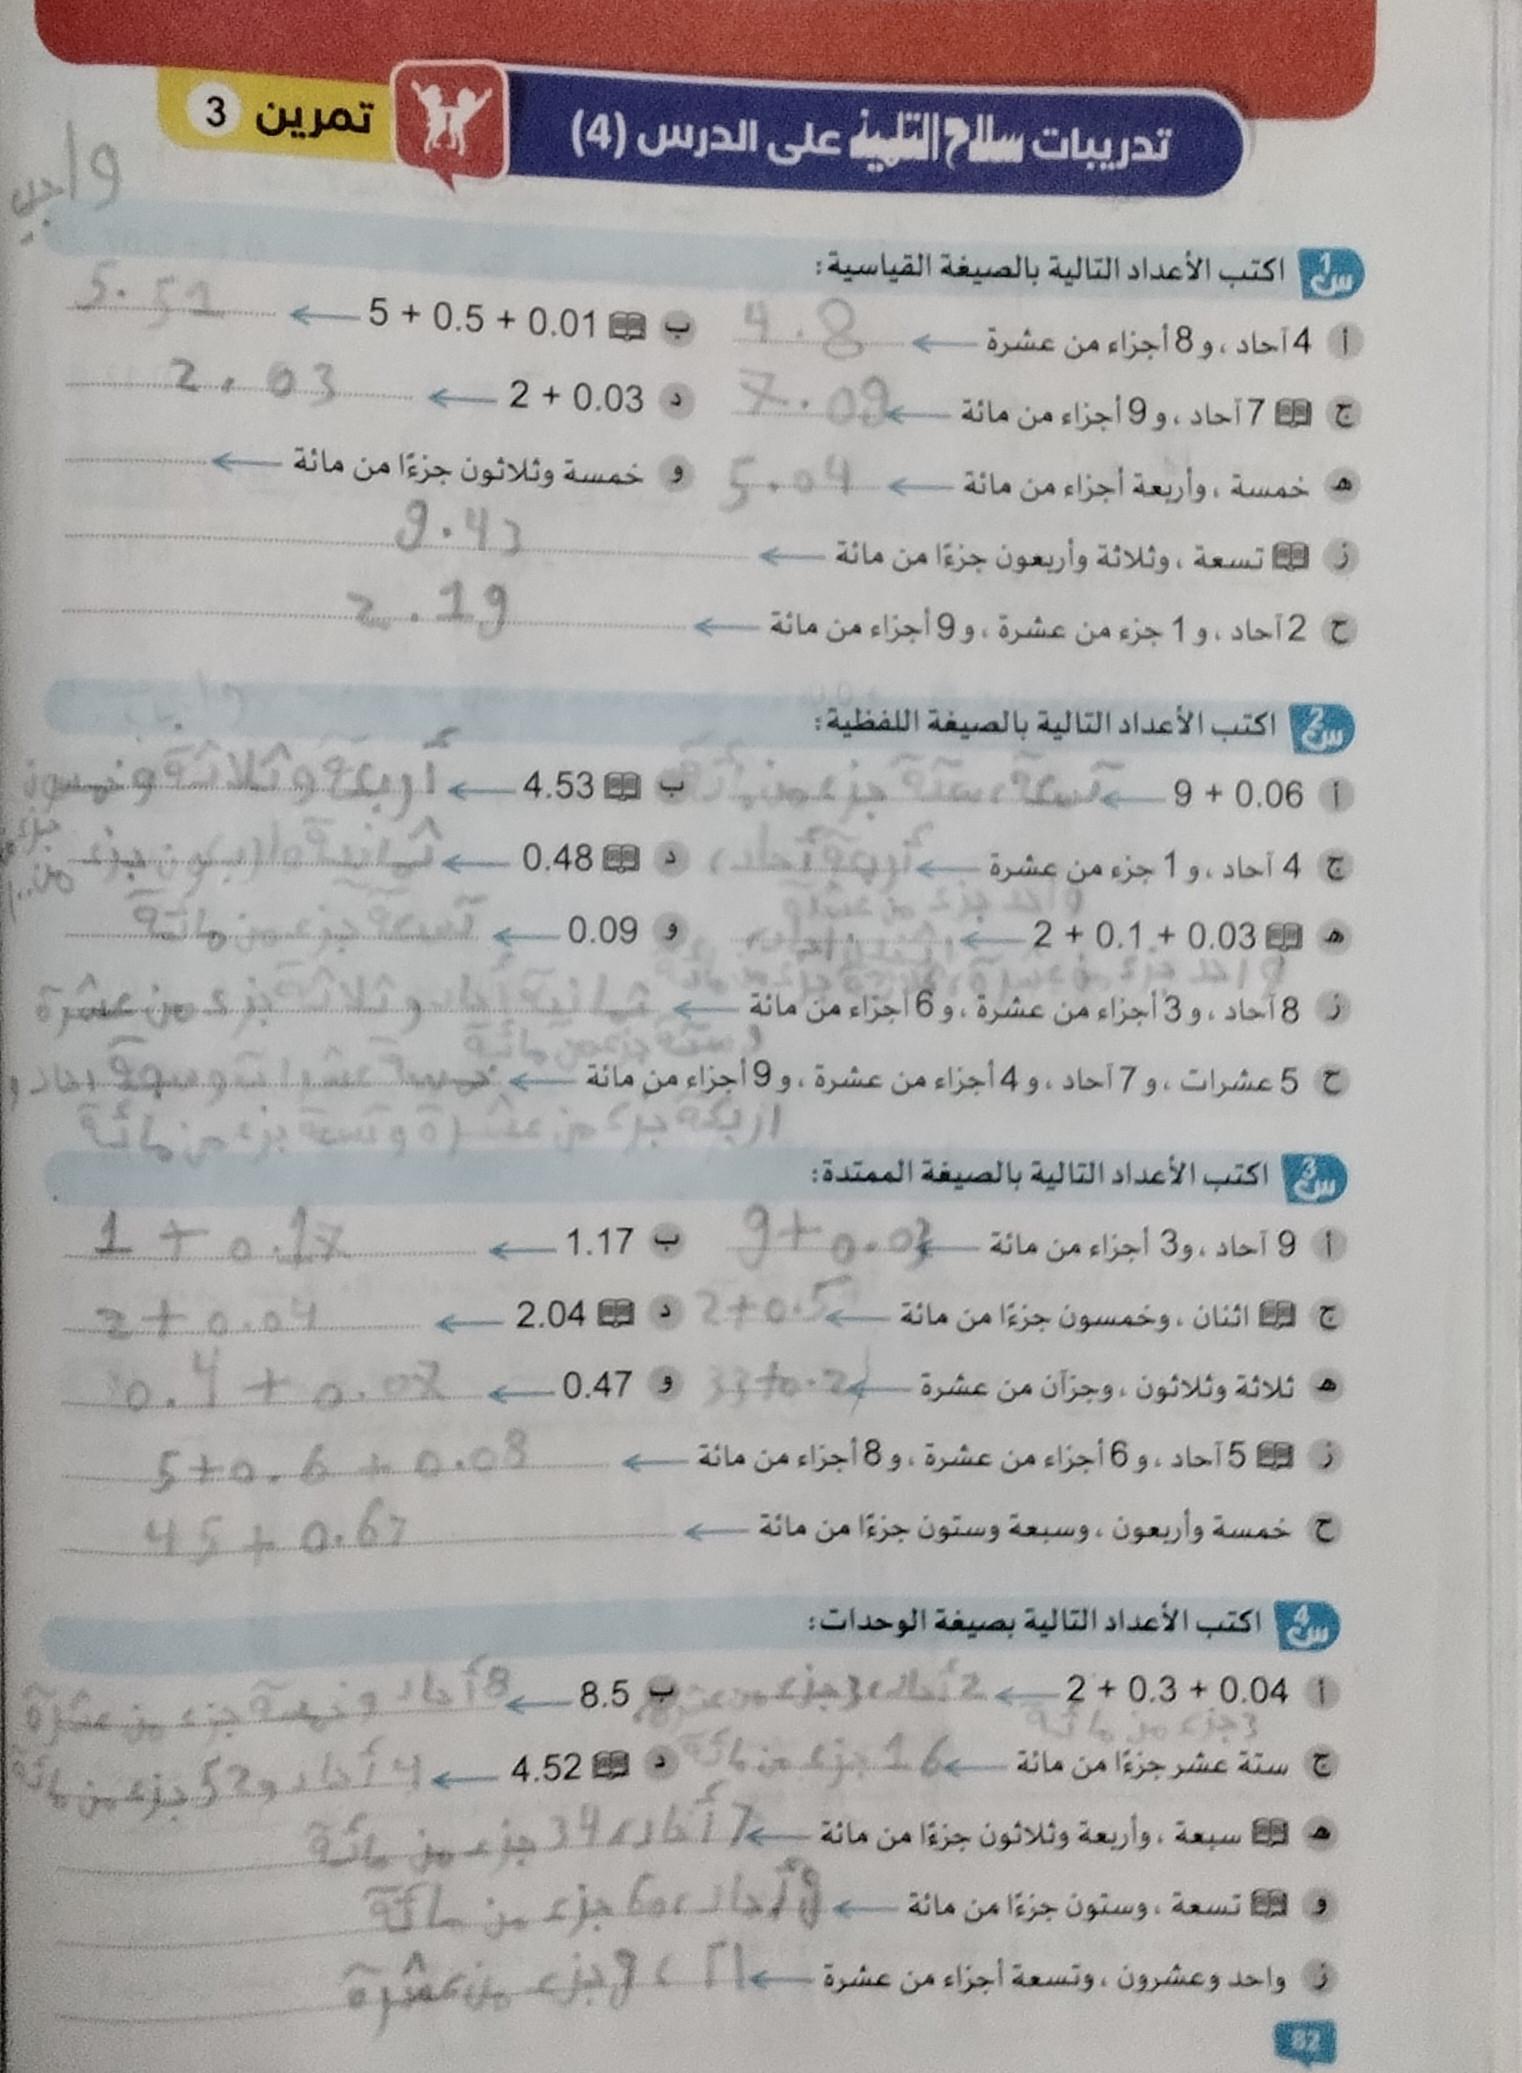 تدريبات سلاح التلميذ على الدرس (4)
تمرين 3
واجب
س1 اكتب الأعداد التالية بالصيغة القياسية:
أ 4 آحاد ، و 8 أجزاء من عشرة ← 4.8
ب 5 + 0.5 + 0.01 ← 5.51
ج 7 آحاد ، و 9 أجزاء من مائة ← 7.09
د 2 + 0.03 ← 2.03
هـ خمسة ، وأربعة أجزاء من مائة ← 5.04
و خمسة وثلاثون جزءًا من مائة ←
ز تسعة ، وثلاثة وأربعون جزءًا من مائة ← 9.43
ح 2 آحاد ، و 1 جزء من عشرة ، و 9 أجزاء من مائة ← 2.19
س2 اكتب الأعداد التالية بالصيغة اللفظية:
أ 9 + 0.06 ← تسعة، ستة جزء من مأئة
ب 4.53 ← أربعة و ثلاثة و خمسون جزء من
ج 4 آحاد ، و 1 جزء من عشرة ← أربعة أحاد،
واحد جزء من عشرة
د 0.48 ← ثمانية واربعون جزء
هـ 2 + 0.1 + 0.03 ←
واحد جزء من عشرة،
و 0.09 ← تسعة جزء من مائة
ز 8 آحاد ، و 3 أجزاء من عشرة ، و 6 أجزاء من مائة ← ثمانية أحاد و ثلاثة جزء من عشرة
و ستة جزء من مائة
ح 5 عشرات ، و 7 آحاد ، و 4 أجزاء من عشرة ، و 9 أجزاء من مائة ← خمسة عشرات وسبعة احاد و
اربعة جزء من عشرة و تسعة جزء من مأئة
س3 اكتب الأعداد التالية بالصيغة الممتدة:
أ 9 آحاد ، و3 أجزاء من مائة ← 9+0.03
ب 1.17 ← 1 + 0.17
ج اثنان ، وخمسون جزءًا من مائة ← 2+0.5
د 2.04 ← 2+0.04
هـ ثلاثة وثلاثون ، وجزآن من عشرة ← 33+0.2
و 0.47 ← 0.4 + 0.07
ز 5 آحاد ، و 6 أجزاء من عشرة ، و 8 أجزاء من مائة ← 5+0.6 +0.08
ح خمسة وأربعون ، وسبعة وستون جزءًا من مائة ← 45+0.67
س4 اكتب الأعداد التالية بصيغة الوحدات:
أ 2 + 0.3 + 0.04 ← 2 أحاد، 3 جزء من عشرة،
جزء من مائة
ب 8.5 ← 8 أحاد و خمسة جزء من عشرة
ج ستة عشر جزءًا من مائة ← 16 جزء من مائة
د 4.52 ← 4 أحاد و 52 جزء من مائة
هـ سبعة ، وأربعة وثلاثون جزءًا من مائة ← 7 أحاد، 34 جزء من مائة
و تسعة ، وستون جزءًا من مائة ← 9 أحاد، 60 جزء من مائة
ز واحد وعشرون ، وتسعة أجزاء من عشرة ← 9 جزء من عشرة
82